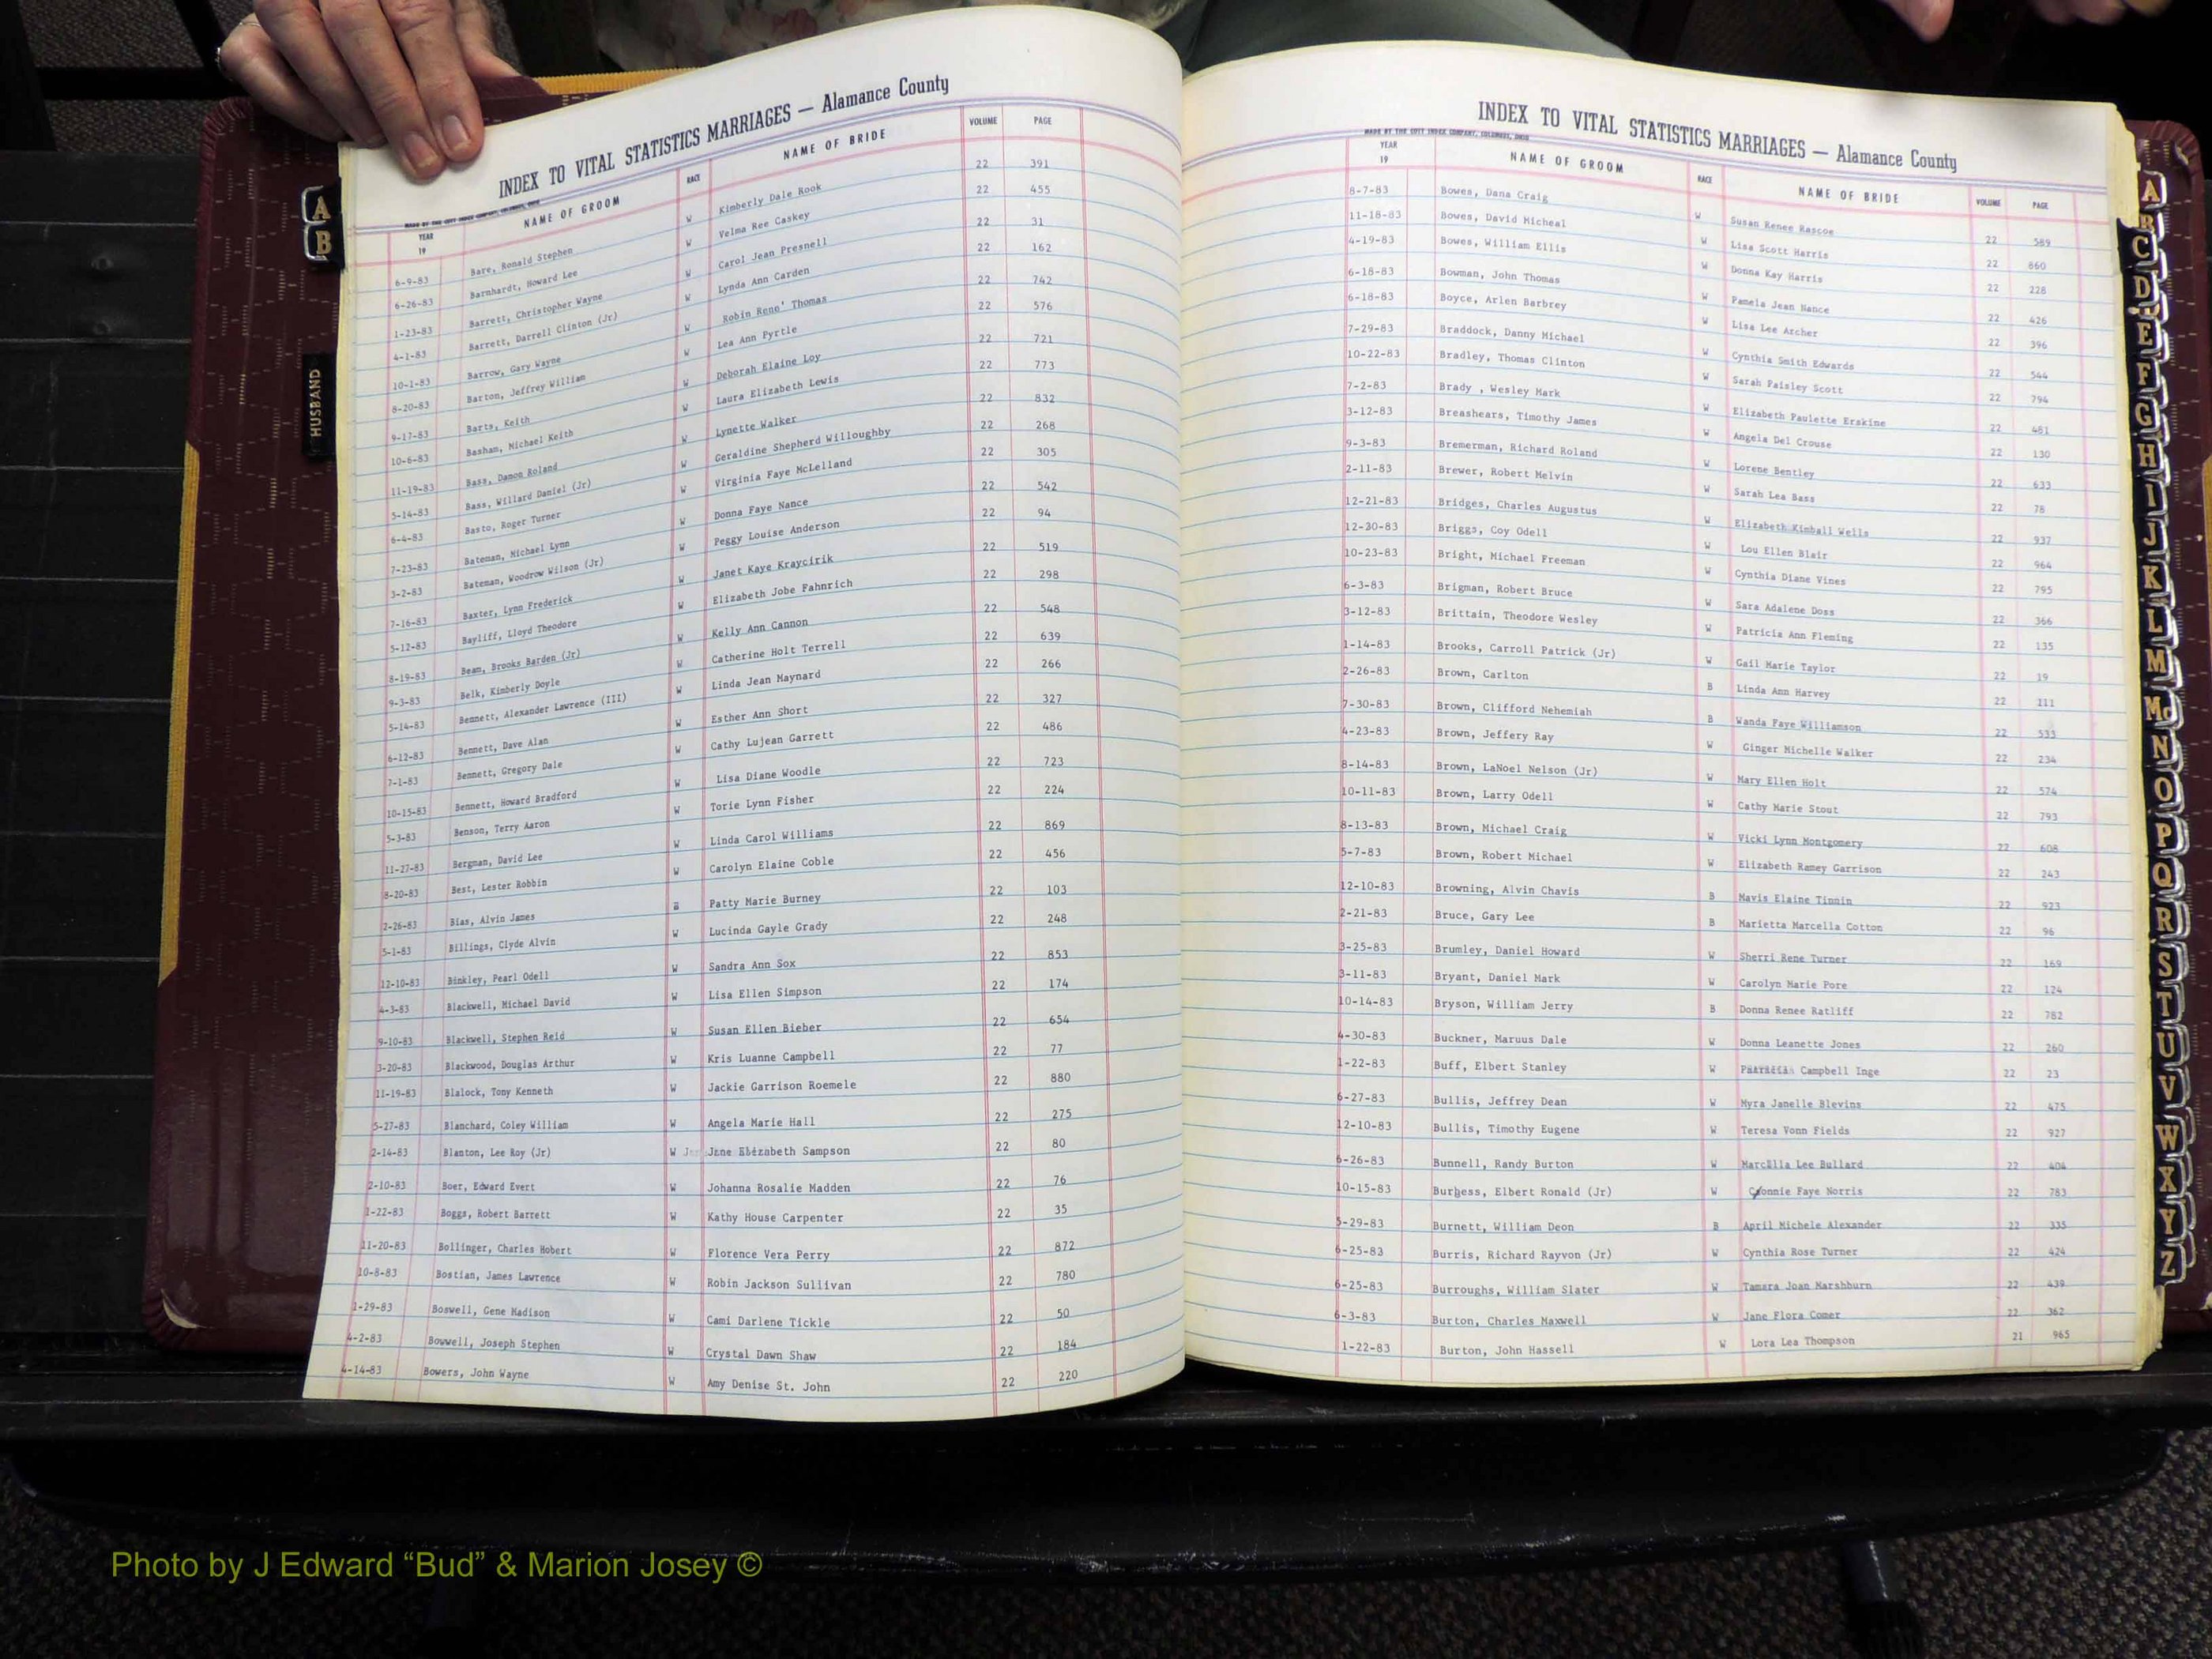 INDEX TO VITAL STATISTICS MARRIAGES — Alamance County
MADE BY THE COTT INDEX COMPANY, COLUMBUS, OHIO
YEAR 19 NAME OF GROOM RACE NAME OF BRIDE VOLUME PAGE
6-9-83 Bare, Ronald Stephen W Kimberly Dale Rook 22 391
6-26-83 Barnhardt, Howard Lee W Velma Ree Caskey 22 455
1-23-83 Barrett, Christopher Wayne W Carol Jean Presnell 22 31
4-1-83 Barrett, Darrell Clinton (Jr) W Lynda Ann Carden 22 162
10-1-83 Barrow, Gary Wayne W Robin Rene' Thomas 22 742
8-20-83 Barton, Jeffrey William W Lea Ann Pyrtle 22 576
9-17-83 Barts, Keith W Deborah Elaine Loy 22 721
10-6-83 Basham, Michael Keith W Laura Elizabeth Lewis 22 773
11-19-83 Bass, Damon Roland W Lynette Walker 22 832
5-14-83 Bass, Willard Daniel (Jr) W Geraldine Shepherd Willoughby 22 268
6-4-83 Basto, Roger Turner W Virginia Faye McLelland 22 305
7-23-83 Bateman, Michael Lynn W Donna Faye Nance 22 542
3-2-83 Bateman, Woodrow Wilson (Jr) W Peggy Louise Anderson 22 94
7-16-83 Baxter, Lynn Frederick W Janet Kaye Kraycirik 22 519
5-12-83 Bayliff, Lloyd Theodore W Elizabeth Jobe Fahnrich 22 298
8-19-83 Beam, Brooks Barden (Jr) W Kelly Ann Cannon 22 548
9-3-83 Belk, Kimberly Doyle W Catherine Holt Terrell 22 639
5-14-83 Bennett, Alexander Lawrence (III) W Linda Jean Maynard 22 266
6-12-83 Bennett, Dave Alan W Esther Ann Short 22 327
7-1-83 Bennett, Gregory Dale W Cathy Lujean Garrett 22 486
10-15-83 Bennett, Howard Bradford W Lisa Diane Woodle 22 723
5-3-83 Benson, Terry Aaron W Torie Lynn Fisher 22 224
11-27-83 Bergman, David Lee W Linda Carol Williams 22 869
8-20-83 Best, Lester Robbin W Carolyn Elaine Coble 22 456
2-26-83 Bias, Alvin James Patty Marie Burney 22 103
5-1-83 Billings, Clyde Alvin W Lucinda Gayle Grady 22 248
12-10-83 Binkley, Pearl Odell W Sandra Ann Sox 22 853
4-3-83 Blackwell, Michael David W Lisa Ellen Simpson 22 174
9-10-83 Blackwell, Stephen Reid W Susan Ellen Bieber 22 654
3-20-83 Blackwood, Douglas Arthur W Kris Luanne Campbell 22 77
11-19-83 Blalock, Tony Kenneth W Jackie Garrison Roemele 22 880
5-27-83 Blanchard, Coley William W Angela Marie Hall 22 275
2-14-83 Blanton, Lee Roy (Jr) W Jane Elizabeth Sampson 22 80
2-10-83 Boer, Edward Evert W Johanna Rosalie Madden 22 76
1-22-83 Boggs, Robert Barrett W Kathy House Carpenter 22 35
11-20-83 Bollinger, Charles Hobert W Florence Vera Perry 22 872
10-8-83 Bostian, James Lawrence W Robin Jackson Sullivan 22 780
1-29-83 Boswell, Gene Madison W Cami Darlene Tickle 22 50
4-2-83 Bowwell, Joseph Stephen W Crystal Dawn Shaw 22 184
4-14-83 Bowers, John Wayne W Amy Denise St. John 22 220
A
B
HUSBAND
INDEX TO VITAL STATISTICS MARRIAGES — Alamance County
MADE BY THE COTT INDEX COMPANY, COLUMBUS, OHIO
YEAR 19 NAME OF GROOM RACE NAME OF BRIDE VOLUME PAGE
8-7-83 Bowes, Dana Craig W Susan Renee Rascoe 22 589
11-18-83 Bowes, David Micheal W Lisa Scott Harris 22 860
4-19-83 Bowes, William Ellis W Donna Kay Harris 22 228
6-18-83 Bowman, John Thomas W Pamela Jean Nance 22 426
6-18-83 Boyce, Arlen Barbrey W Lisa Lee Archer 22 396
7-29-83 Braddock, Danny Michael W Cynthia Smith Edwards 22 544
10-22-83 Bradley, Thomas Clinton W Sarah Paisley Scott 22 794
7-2-83 Brady , Wesley Mark W Elizabeth Paulette Erskine 22 481
3-12-83 Breashears, Timothy James W Angela Del Crouse 22 130
9-3-83 Bremerman, Richard Roland W Lorene Bentley 22 633
2-11-83 Brewer, Robert Melvin W Sarah Lea Bass 22 78
12-21-83 Bridges, Charles Augustus W Elizabeth Kimball Wells 22 937
12-30-83 Briggs, Coy Odell W Lou Ellen Blair 22 964
10-23-83 Bright, Michael Freeman W Cynthia Diane Vines 22 795
6-3-83 Brigman, Robert Bruce W Sara Adalene Doss 22 366
3-12-83 Brittain, Theodore Wesley W Patricia Ann Fleming 22 135
1-14-83 Brooks, Carroll Patrick (Jr) W Gail Marie Taylor 22 19
2-26-83 Brown, Carlton B Linda Ann Harvey 22 111
7-30-83 Brown, Clifford Nehemiah B Wanda Faye Williamson 22 533
4-23-83 Brown, Jeffery Ray W Ginger Michelle Walker 22 234
8-14-83 Brown, LaNoel Nelson (Jr) W Mary Ellen Holt 22 574
10-11-83 Brown, Larry Odell W Cathy Marie Stout 22 793
8-13-83 Brown, Michael Craig W Vicki Lynn Montgomery 22 608
5-7-83 Brown, Robert Michael W Elizabeth Ramey Garrison 22 243
12-10-83 Browning, Alvin Chavis B Mavis Elaine Tinnin 22 923
2-21-83 Bruce, Gary Lee B Marietta Marcella Cotton 22 96
3-25-83 Brumley, Daniel Howard W Sherri Rene Turner 22 169
3-11-83 Bryant, Daniel Mark W Carolyn Marie Pore 22 124
10-14-83 Bryson, William Jerry B Donna Renee Ratliff 22 782
4-30-83 Buckner, Maruus Dale W Donna Leanette Jones 22 260
1-22-83 Buff, Elbert Stanley W Campbell Inge 22 23
6-27-83 Bullis, Jeffrey Dean W Myra Janelle Blevins 22 475
12-10-83 Bullis, Timothy Eugene W Teresa Vonn Fields 22 927
6-26-83 Bunnell, Randy Burton W Marcellia Lee Bullard 22 404
10-15-83 Burgess, Elbert Ronald (Jr) W Connie Faye Norris 22 783
5-29-83 Burnett, William Deon B April Michele Alexander 22 335
6-25-83 Burris, Richard Rayvon (Jr) W Cynthia Rose Turner 22 424
6-25-83 Burroughs, William Slater W Tamara Joan Marshburn 22 439
6-3-83 Burton, Charles Maxwell W Jane Flora Comer 22 362
1-22-83 Burton, John Hassell W Lora Lea Thompson 21 965
A
B
C
D
E
F
G
H
I
J
K
L
M
Mc
N
O
P
Q
R
S
T
U
V
W
X
Y
Z
Photo by J Edward “Bud” & Marion Josey ©